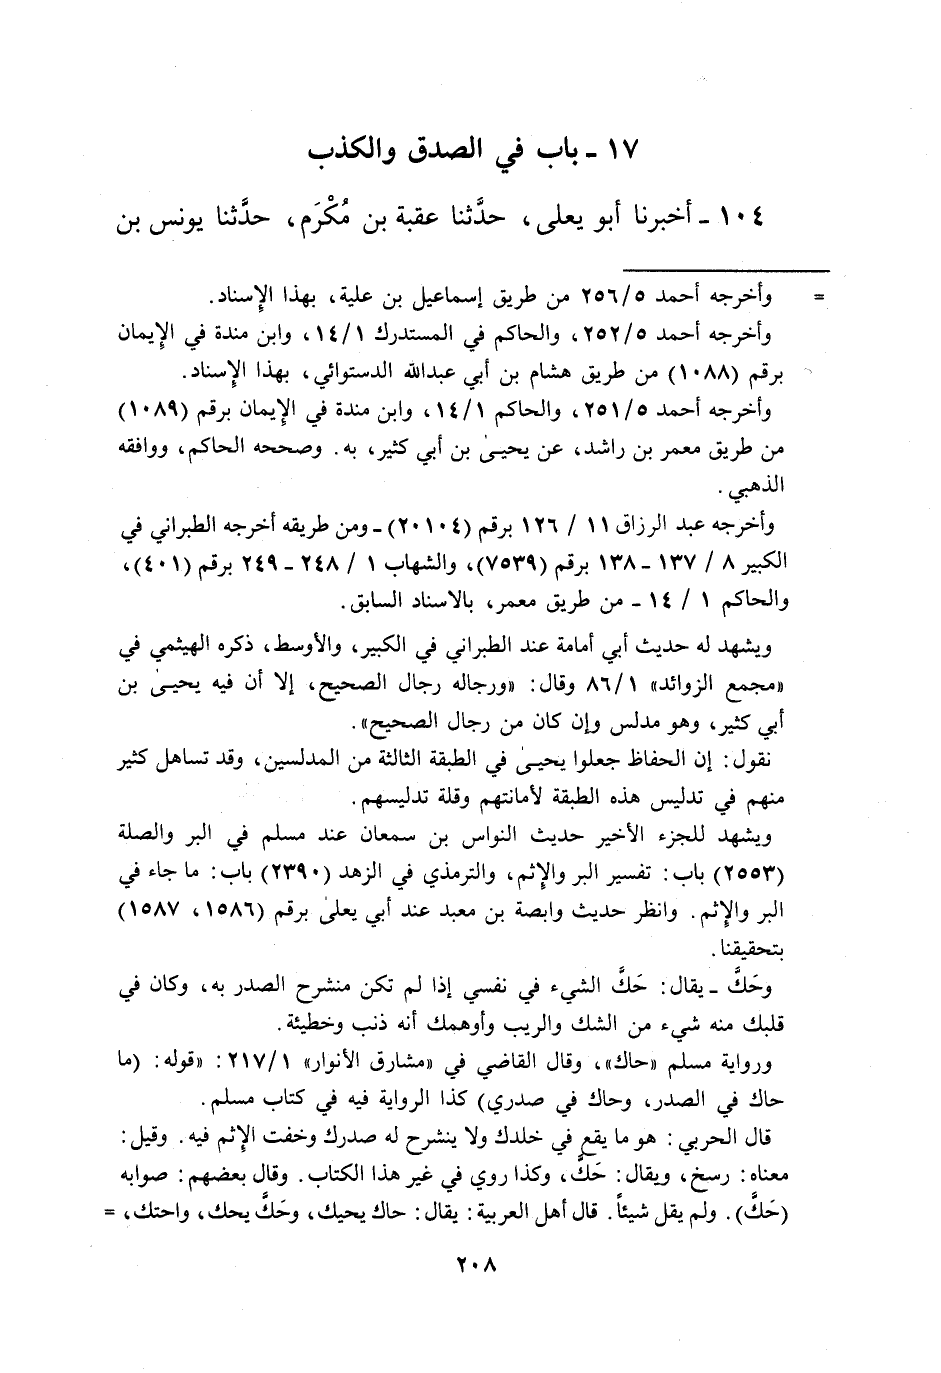 ١٧ - باب في الصدق والكذب
١٠٤ - أخبرنا أبو يعلى، حدَّثنا عقبة بن مُكْرَم، حدَّثنا يونس بن
= وأخرجه أحمد ٢٥٦/٥ من طريق إسماعيل بن علية، بهذا الإسناد.
وأخرجه أحمد ٢٥٢/٥، والحاكم في المستدرك ١٤/١، وابن مندة في الإيمان
برقم (١٠٨٨) من طريق هشام بن أبي عبدالله الدستوائي، بهذا الإسناد.
وأخرجه أحمد ٢٥١/٥، والحاكم ١٤/١، وابن مندة في الإيمان برقم (١٠٨٩)
من طريق معمر بن راشد، عن يحيىٰ بن أبي كثير، به. وصححه الحاكم، ووافقه
الذهبي.
وأخرجه عبد الرزاق ١١ / ١٢٦ برقم (٢٠١٠٤) - ومن طريقه أخرجه الطبراني في
الكبير ٨ / ١٣٧ - ١٣٨ برقم (٧٥٣٩)، والشهاب ١ / ٢٤٨ - ٢٤٩ برقم (٤٠١)،
والحاكم ١ / ١٤ - من طريق معمر، بالاسناد السابق.
ويشهد له حديث أبي أمامة عند الطبراني في الكبير، والأوسط، ذكره الهيثمي في
«مجمع الزوائد» ٨٦/١ وقال: «ورجاله رجال الصحيح، إلا أن فيه يحيىٰ بن
أبي كثير، وهو مدلس وإن كان من رجال الصحيح».
نقول: إن الحفاظ جعلوا يحيىٰ في الطبقة الثالثة من المدلسين، وقد تساهل كثير
منهم في تدليس هذه الطبقة لأمانتهم وقلة تدليسهم.
ويشهد للجزء الأخير حديث النواس بن سمعان عند مسلم في البر والصلة
(٢٥٥٣) باب: تفسير البر والإثم، والترمذي في الزهد (٢٣٩٠) باب: ما جاء في
البر والإثم. وانظر حديث وابصة بن معبد عند أبي يعلىٰ برقم (١٥٨٦، ١٥٨٧)
بتحقيقنا.
وحَكَّ - يقال: حَكَّ الشيء في نفسي إذا لم تكن منشرح الصدر به، وكان في
قلبك منه شيء من الشك والريب وأوهمك أنه ذنب وخطيئة.
ورواية مسلم «حاك»، وقال القاضي في «مشارق الأنوار» ٢١٧/١: «قوله: (ما
حاك في الصدر، وحاك في صدري) كذا الرواية فيه في كتاب مسلم.
قال الحربي: هو ما يقع في خلدك ولا ينشرح له صدرك وخفت الإثم فيه. وقيل:
معناه: رسخ، ويقال: حَكَّ، وكذا روي في غير هذا الكتاب. وقال بعضهم: صوابه
(حَكَّ). ولم يقل شيئاً. قال أهل العربية: يقال: حاك يحيك، وحَكَّ يحك، واحتك، =
٢٠٨